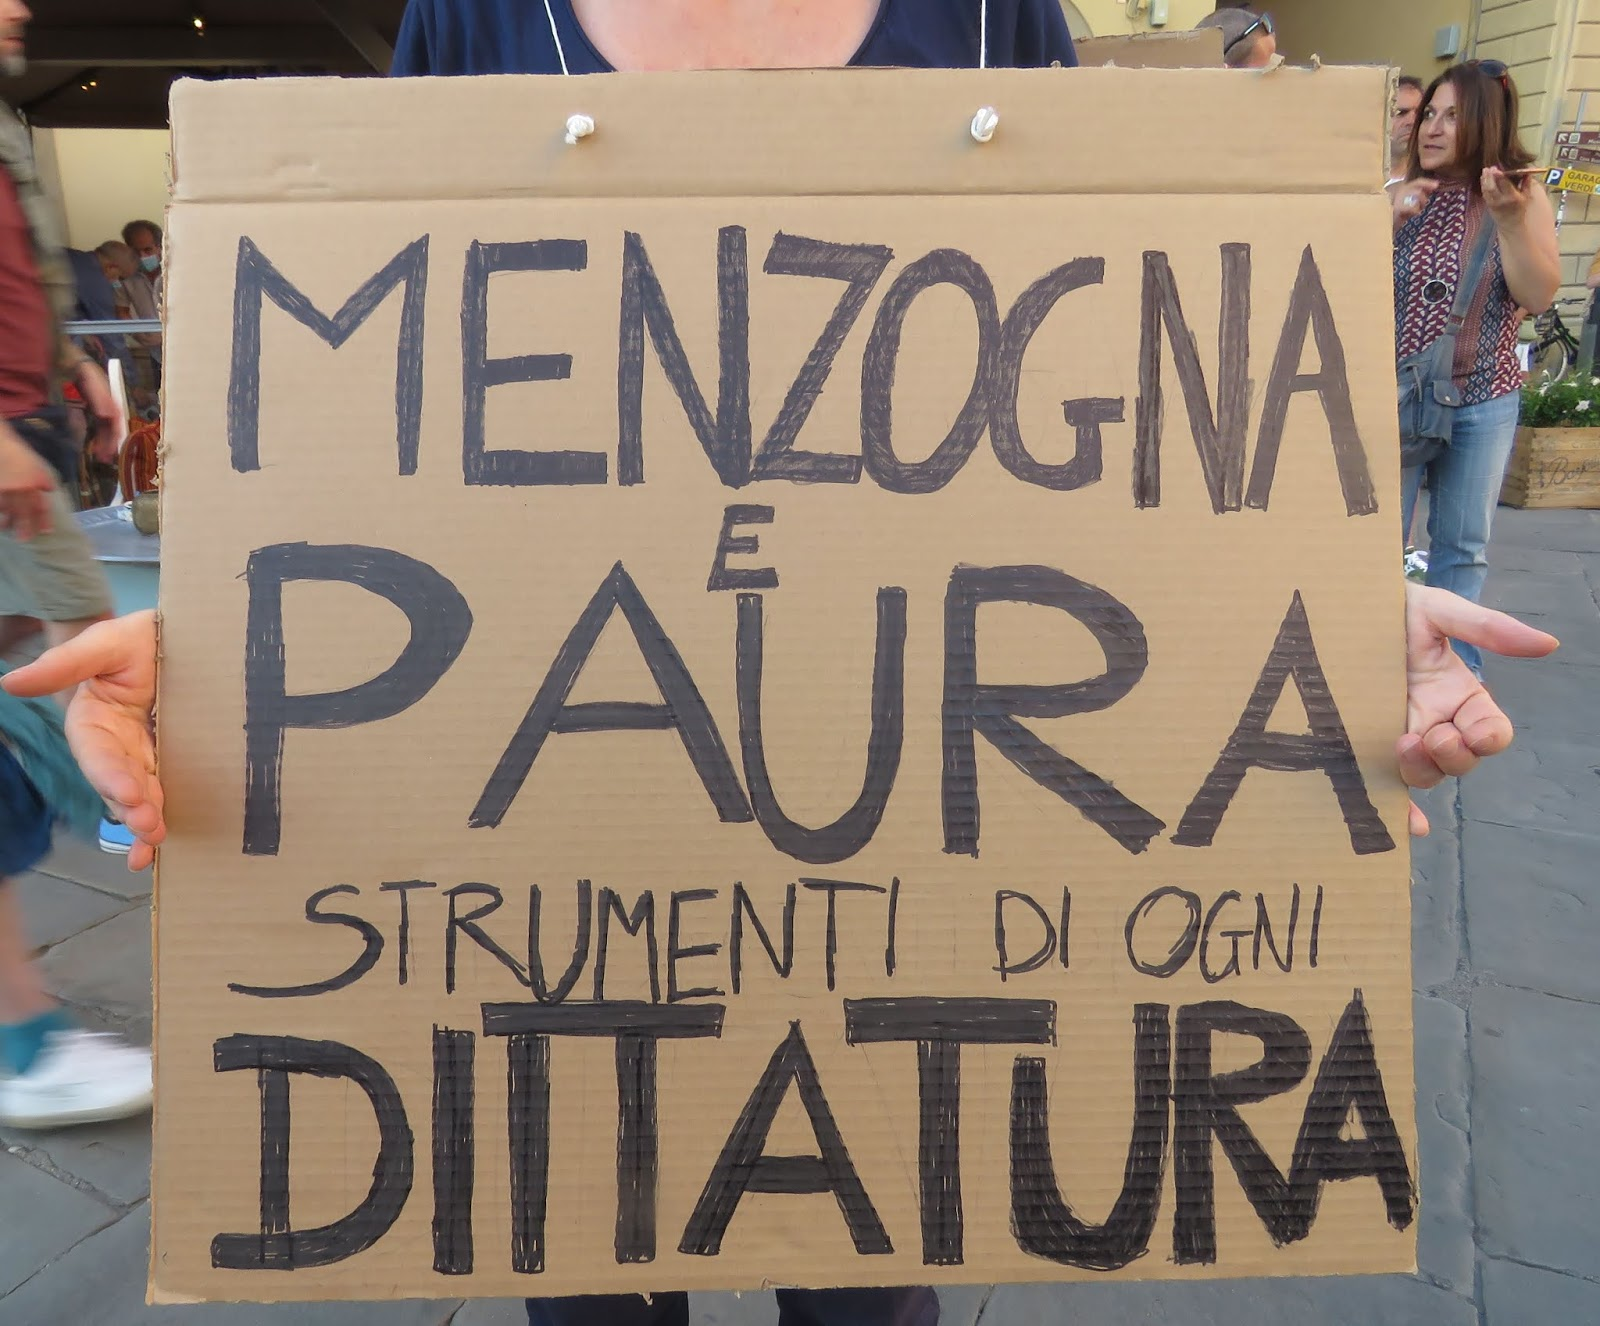 MENZOGNA
E
PAURA
STRUMENTI DI OGNI
DITTATURA
P GARAG
VERDI